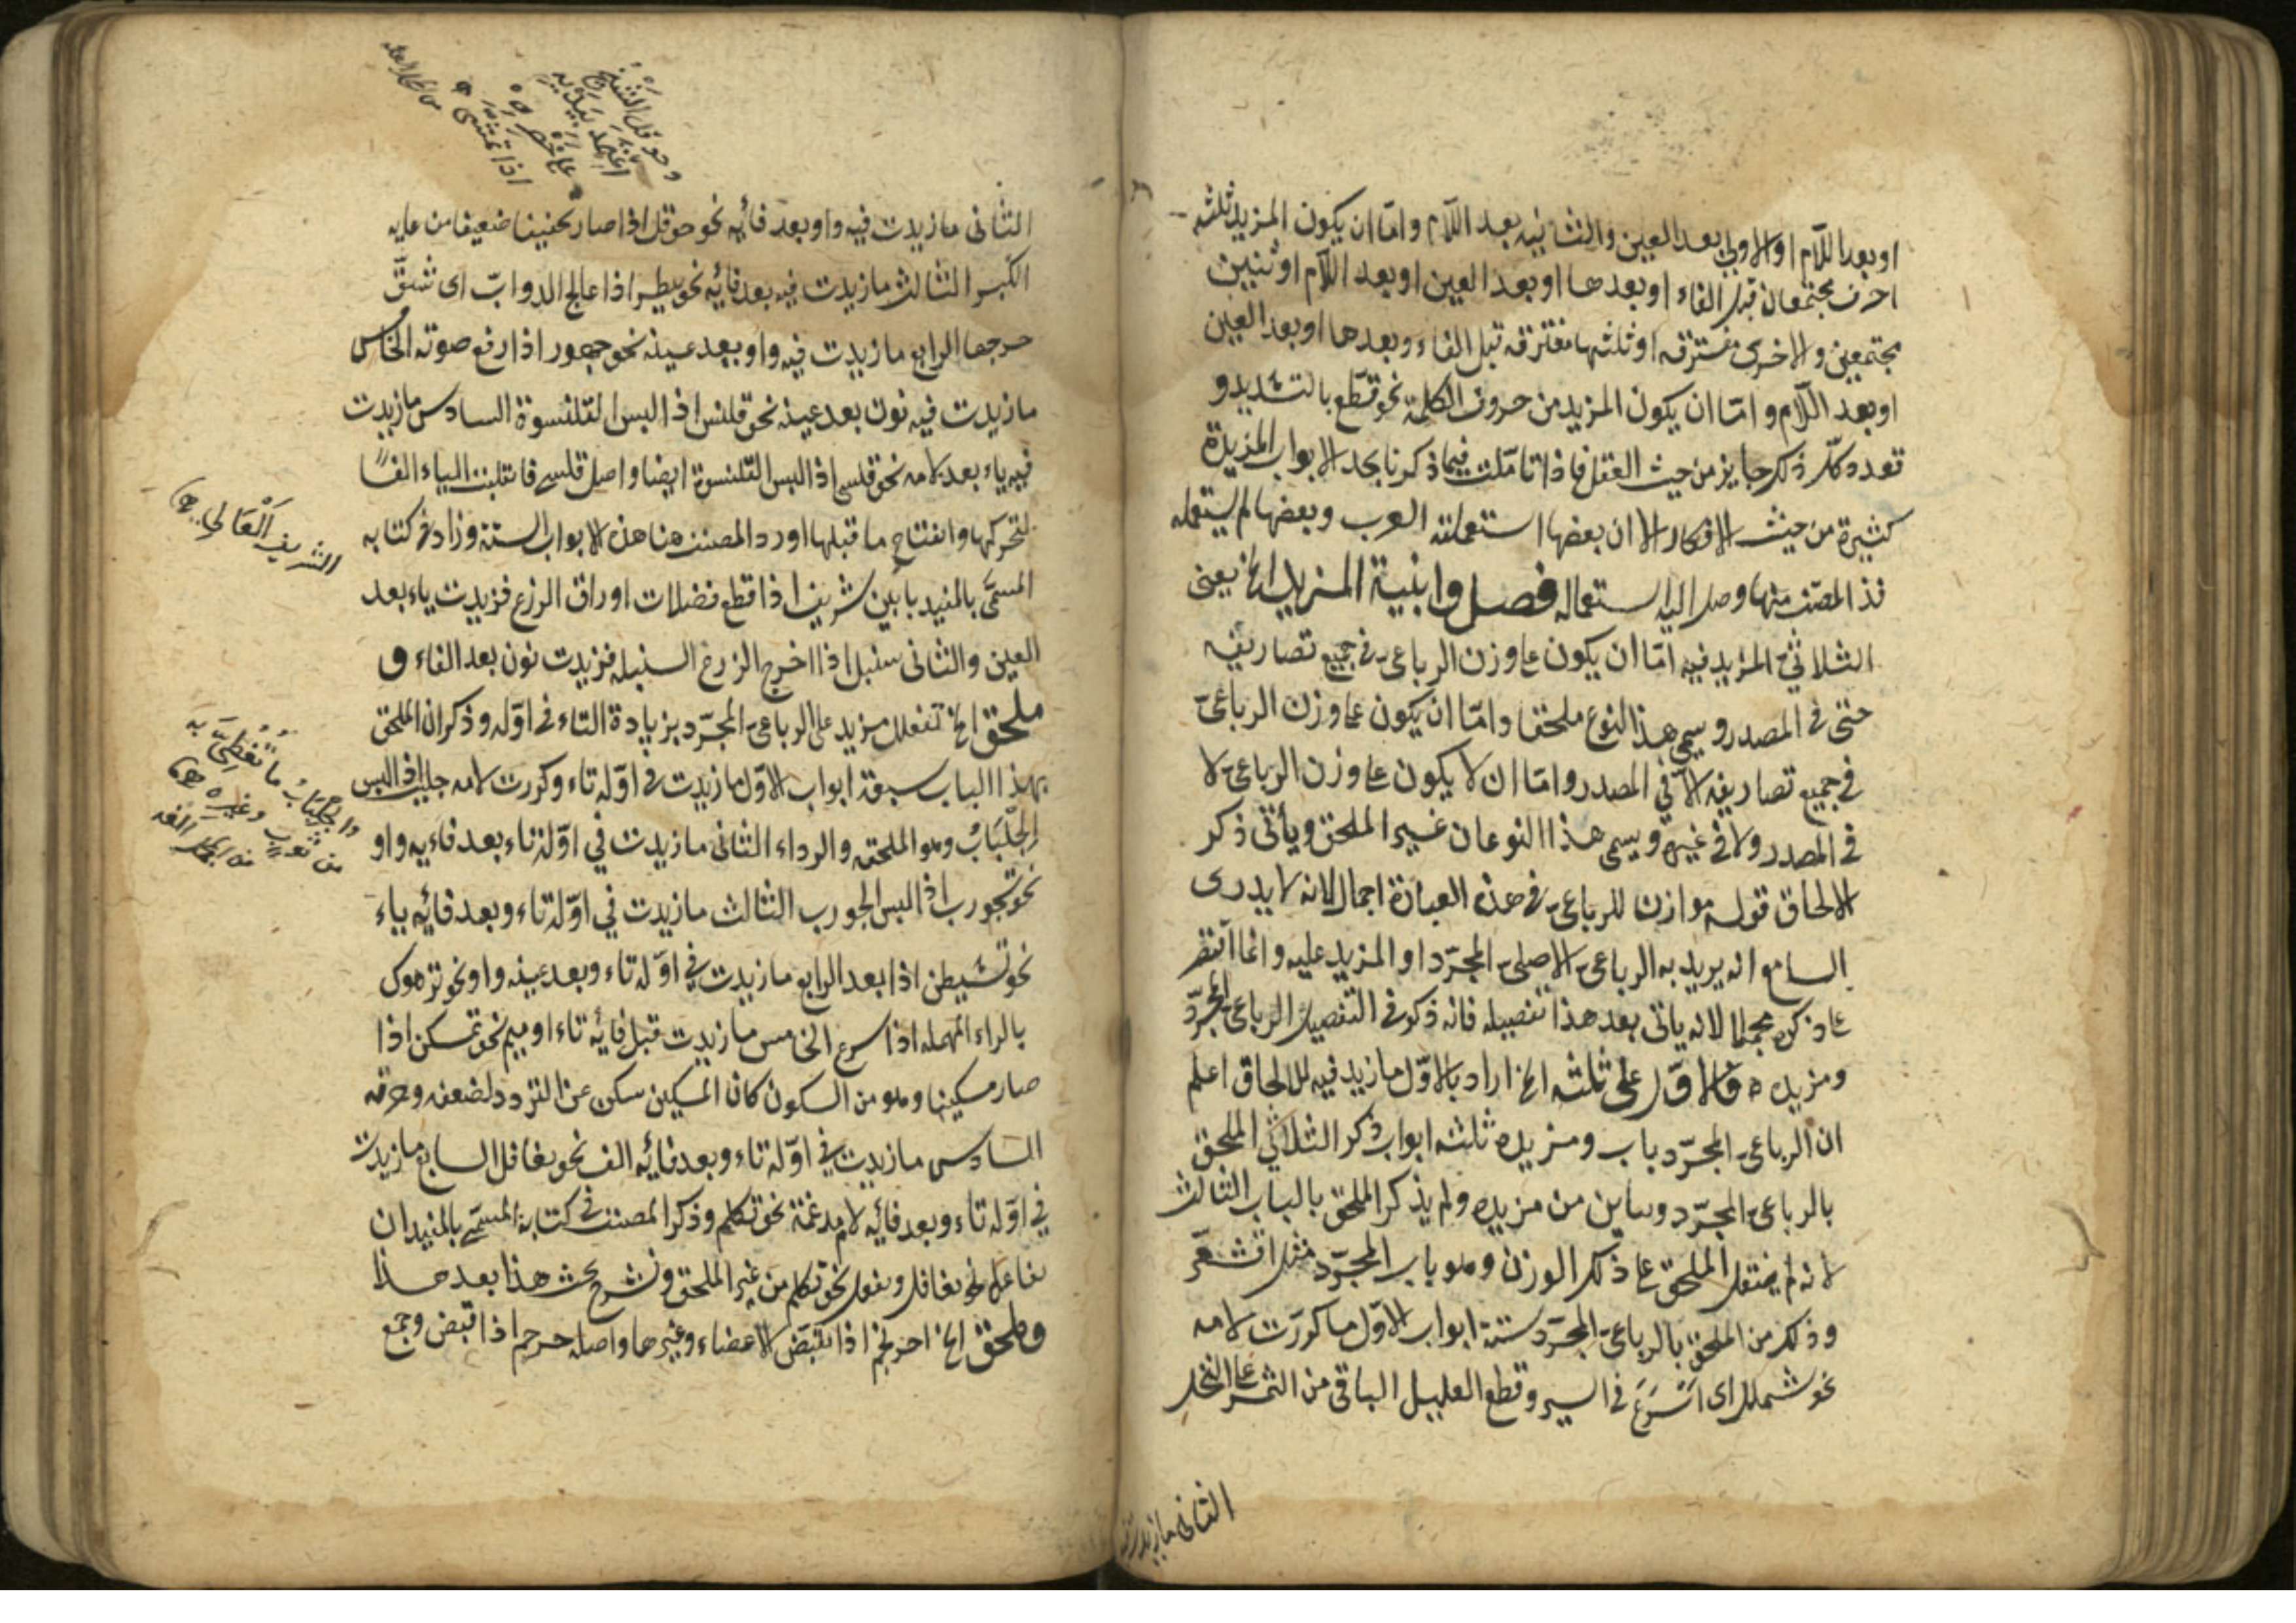 او بعد اللّام او الاولى بعد العين والثانيه بعد اللّام وامّا ان يكون المزيد ثلثه
احرف مجتمعان قبل الفاء او بعدها او بعد العين او بعد اللّام او ثنيين
مجتمعين والاخرى مفترقه او ثلثها مفترقه قبل الفاء وبعدها او بعد العين
او بعد اللّام وامّا ان يكون المزيد من حروف الكلمة نحو قطّع بالتشديد و
تعدد كلّ ذلك جايز من حيث العقل فاذا تامّلت فيما ذكرنا بجد الابواب المزيدة
كثيرة من حيث الافكار الا ان بعضها استعملته العرب وبعضها لم يستعمله
المصنف منها وصل اليه استعماله فصل وابنية المزيد الخ يعنى
الثلاثىّ المزيد فيه امّا ان يكون على وزن الرباعىّ فى جميع تصاريفه
حتى فى المصدر ويسمى هذا النوع ملحقا وامّا ان يكون على وزن الرباعىّ
فى جميع تصاريفه الّا فى المصدر وامّا ان لا يكون على وزن الرباعىّ لا
فى المصدر ولا فى غيره ويسمى هذا النوعان غير الملحق ويأتى ذكر
الالحاق قوله موازن للرباعىّ فى هذه العبارة اجمال لانه لا يدرى
السامع انه يريد به الرباعىّ الاصلىّ المجرّد او المزيد عليه وانما اقتصر
على ذكره مجملا لانه ياتى بعد هذا تفصيله فانه ذكر فى التفصيل الرباعى المجرّد
ومزيده ه فالاوّل على ثلثه الخ اراد بالاوّل ما زيد فيه للالحاق اعلم
ان الرباعىّ المجرّد باب ومزيده ثلثه ابواب ذكر الثلاثى الملحق
بالرباعىّ المجرّد وبابين من مزيده ولم يذكر الملحق بالباب الثالث
لانه لم الملحق على ذلك الوزن وهو باب المجرّد مثل اقشعرّ
وذلك من الملحق بالرباعىّ المجرّد ستة ابواب الاوّل ما كرّرت لامه
نحو شملل اى اَسْرَعَ فى السير وقطع القليل الباقى من الثمر على النخل
الثانى ما زيدت فيه
وحوقل الشيخ
اعتمد بيديه
على خصره
اذا تمشى
الثانى ما زيدت فيه واو بعد فائه نحو حوقل اذا صار ضعيفا من غاية
الكبر الثالث ما زيدت فيه بعد فائه نحو بيطر اذا عالج الدوابّ اى شقّ
جرحها الرابع ما زيدت فيه واو بعد عينه نحو جهور اذا رفع صوته الخامس
ما زيدت فيه نون بعد عينه نحو قلنس اذا لبس القلنسوة السادس ما زيدت
فيه ياء بعد لامه نحو قلسى اذا لبس القلنسوة ايضا واصل قلسى فانقلبت الياء الفاً
لتحركها وانفتاح ما قبلها اورد المصنف هنا هذه الابواب الستة وزاد فى كتابه
المسمّى بالمفيد بابين شريف اذا قطع فضلات اوراق الزرع فزيدت ياء بعد
العين والثانى سنبل اذا اخرج الزرع السنبله فزيدت نون بعد الفاء و
ملحق الخ تفعلل مزيد على الرباعىّ المجرّد بزيادة التاء فى اوّله وذكر ان الملحق
بهذا الباب سبعة ابواب الاوّل ما زيدت فى اوّله تاء وكررت لامه جلبب اذا لبس
الجِلْبَابُ وهو الملحفه والرداء الثانى ما زيدت فى اوّله تاء بعد فايه واو
نحو تجورب اذا لبس الجورب الثالث ما زيدت فى اوّله تاء وبعد فائه ياء
نحو تشيطن اذا بعد الرابع ما زيدت فى اوّله تاء وبعد عينه واو نحو ترهوك
بالراء المهمله اذا اسرع الخامس ما زيدت قبل فائه تاء او ميم نحو تمسكن اذا
صار مسكينا وهو من السكون كان المسكين سكن عن التردد لضعفه وحرقه
السادس ما زيدت فى اوّله تاء وبعد فائه الف نحو تغافل السابع ما زيدت
فى اوّله تاء وبعد فائه لام مدغمة نحو تكلم وذكر المصنف فى كتابه المسمّى بالمفيد ان
تفاعل نحو تغافل وتفعل نحو تكلم من غير الملحق وشرح بحث هذا بعد هذا
وملحق الخ احرنجم اذا تقبّض الاعضاء وغيرها واصله حرجم اذا قبض وجمع
الشريف العالى
والجلباب ما تُغطّى به
من ثوب وغيره